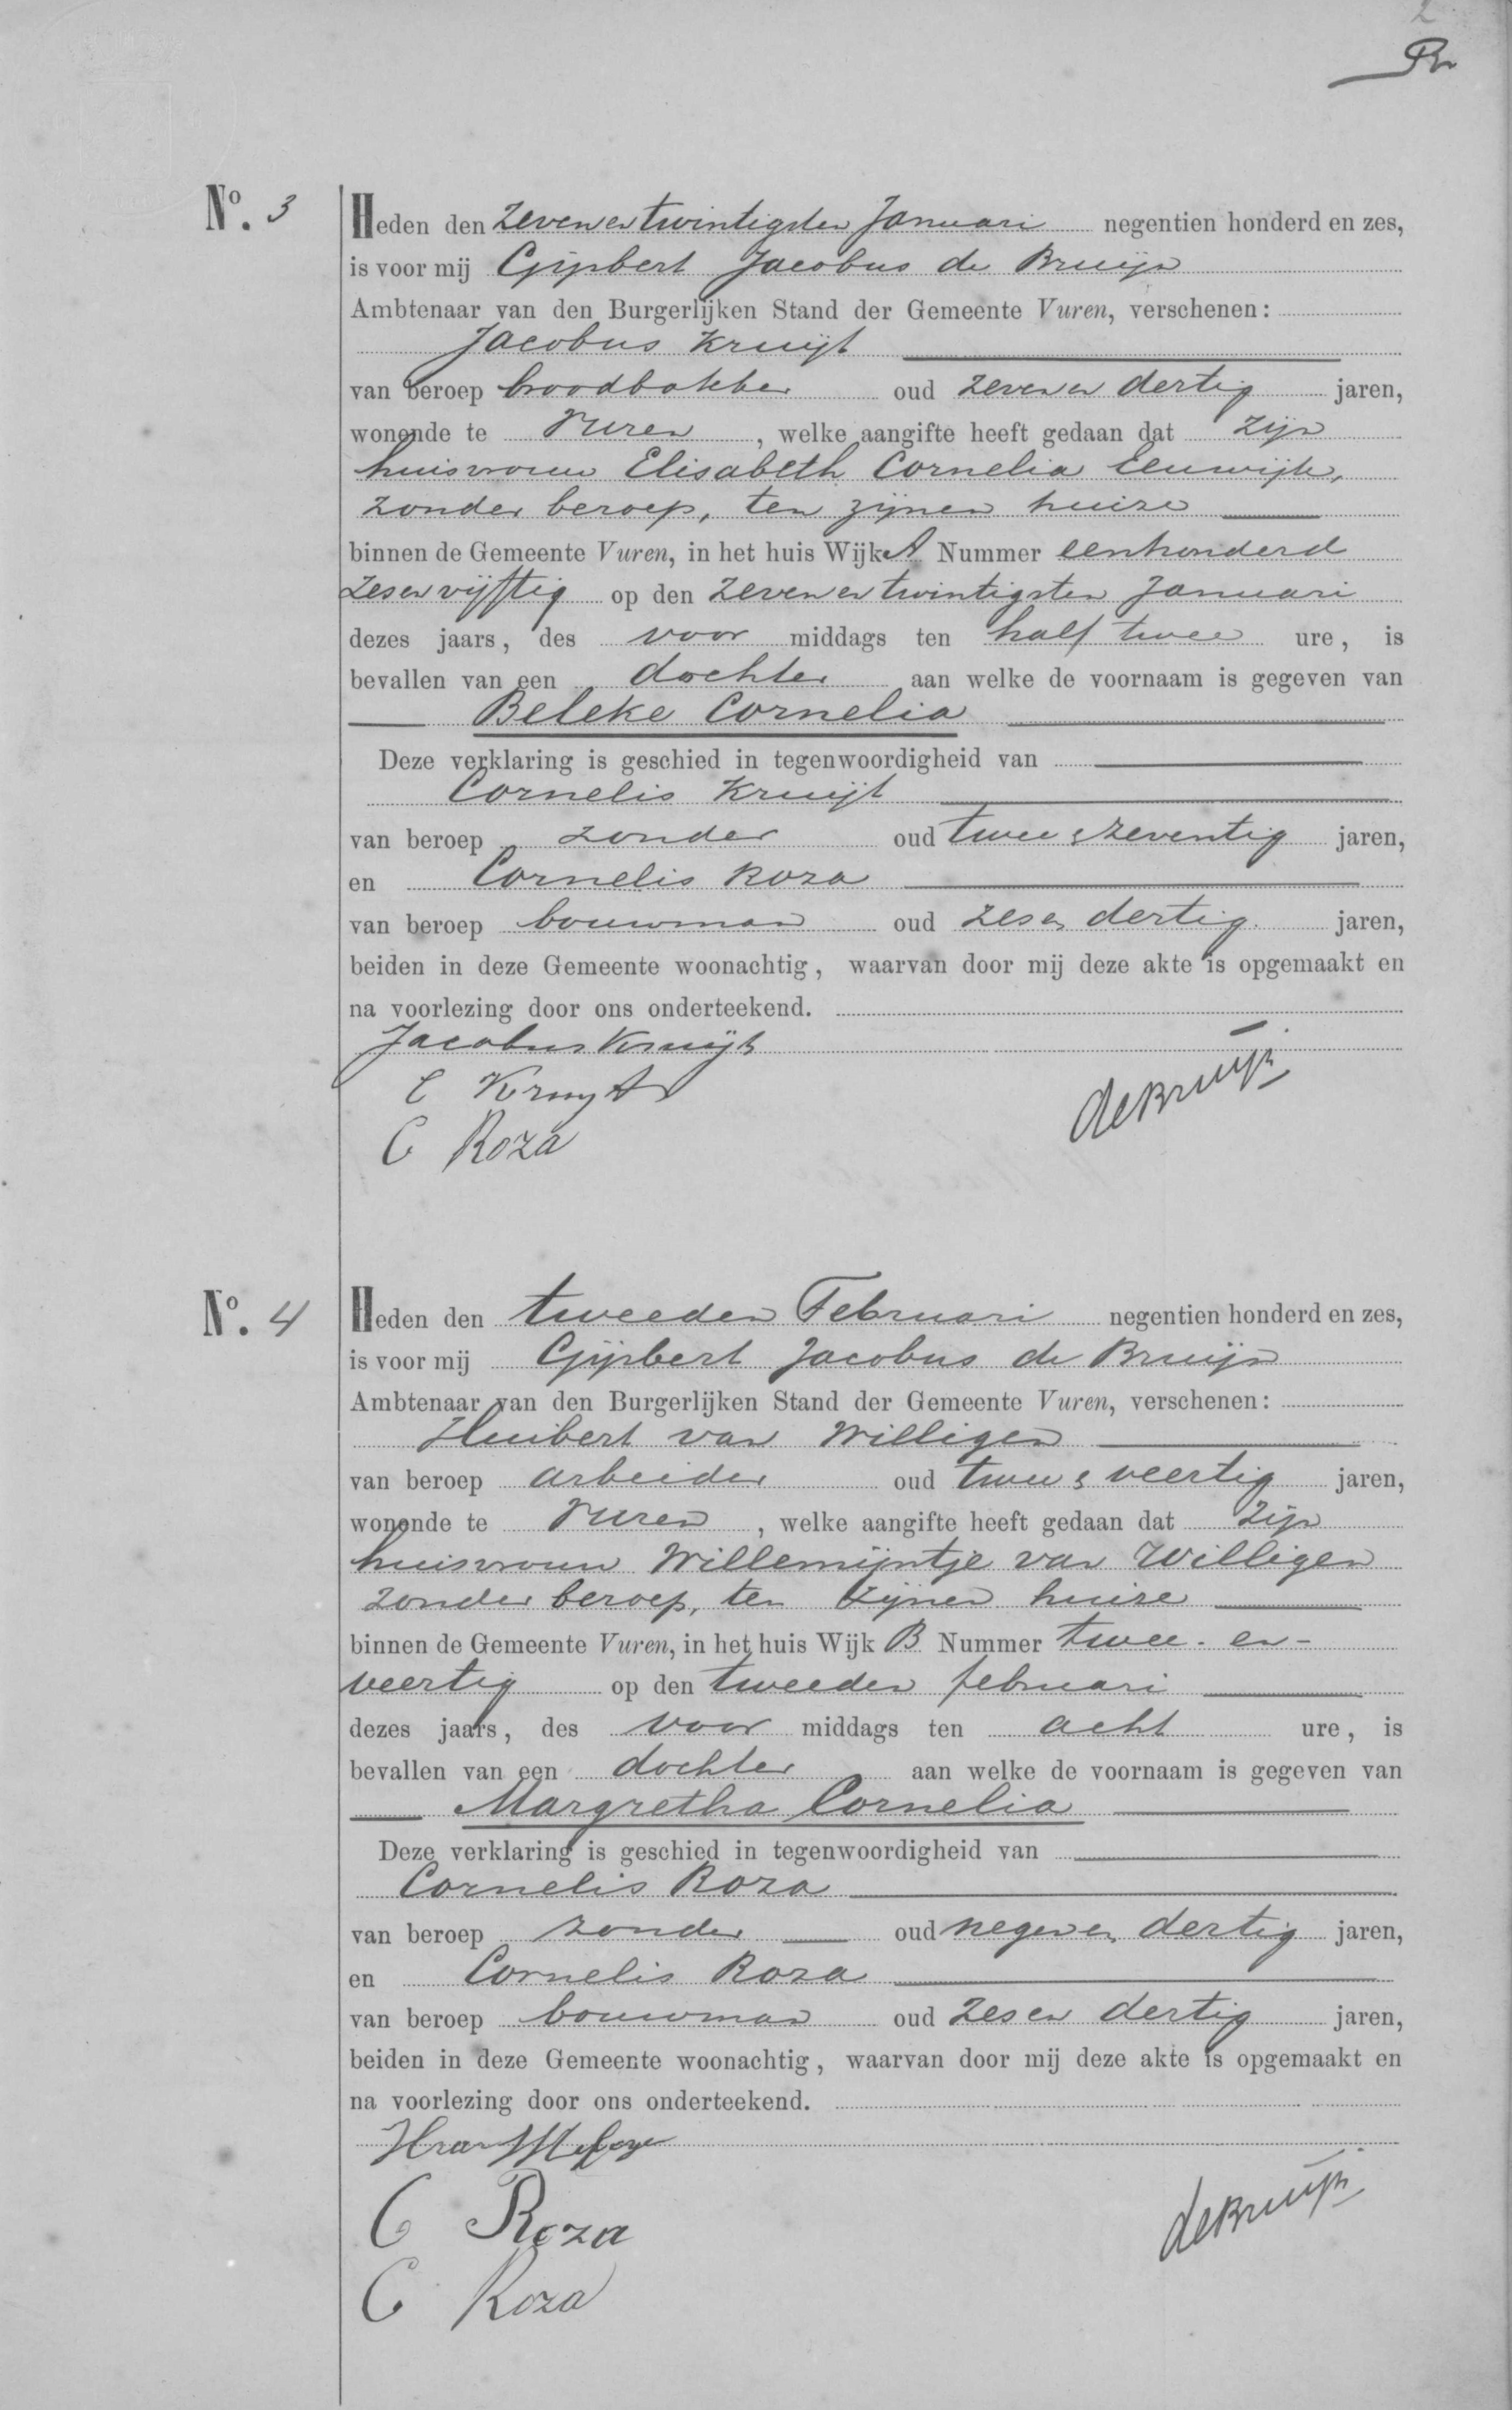 2
No. 3
Heden den zeven en twintigsten Januari negentien honderd en zes,
is voor mij Gijsbert Jacobus de Bruijn
Ambtenaar van den Burgerlijken Stand der Gemeente Vuren, verschenen:
Jacobus Kruijt
van beroep broodbakker oud zeven en dertig jaren,
wonende te Vuren, welke aangifte heeft gedaan dat zijn
huisvrouw Elisabeth Cornelia Leuwijk,
zonder beroep, ten zijnen huize
binnen de Gemeente Vuren, in het huis Wijk A Nummer eenhonderd
zes en vijftig op den zeven en twintigsten Januari
dezes jaars, des voor middags ten half twee ure, is
bevallen van een dochter aan welke de voornaam is gegeven van
Beleke Cornelia
Deze verklaring is geschied in tegenwoordigheid van
Cornelis Kruijt
van beroep zonder oud twee & zeventig jaren,
en Cornelis Roza
van beroep bouwman oud zes en dertig jaren,
beiden in deze Gemeente woonachtig, waarvan door mij deze akte is opgemaakt en
na voorlezing door ons onderteekend.
Jacobus Kruijt
C Kruyt
deBruijn
C Roza
No. 4
Heden den tweeden Februari negentien honderd en zes,
is voor mij Gijsbert Jacobus de Bruijn
Ambtenaar van den Burgerlijken Stand der Gemeente Vuren, verschenen:
Huibert van Willigen
van beroep arbeider oud twee & veertig jaren,
wonende te Vuren, welke aangifte heeft gedaan dat zijn
huisvrouw Willemijntje van Willigen
zonder beroep, ten zijnen huize
binnen de Gemeente Vuren, in het huis Wijk B Nummer twee - en -
veertig op den tweeden februari
dezes jaars, des voor middags ten acht ure, is
bevallen van een dochter aan welke de voornaam is gegeven van
Margretha Cornelia
Deze verklaring is geschied in tegenwoordigheid van
Cornelis Roza
van beroep zonder oud negen en dertig jaren,
en Cornelis Roza
van beroep bouwman oud zes en dertig jaren,
beiden in deze Gemeente woonachtig, waarvan door mij deze akte is opgemaakt en
na voorlezing door ons onderteekend.
C Roza
deBruijn
C Roza